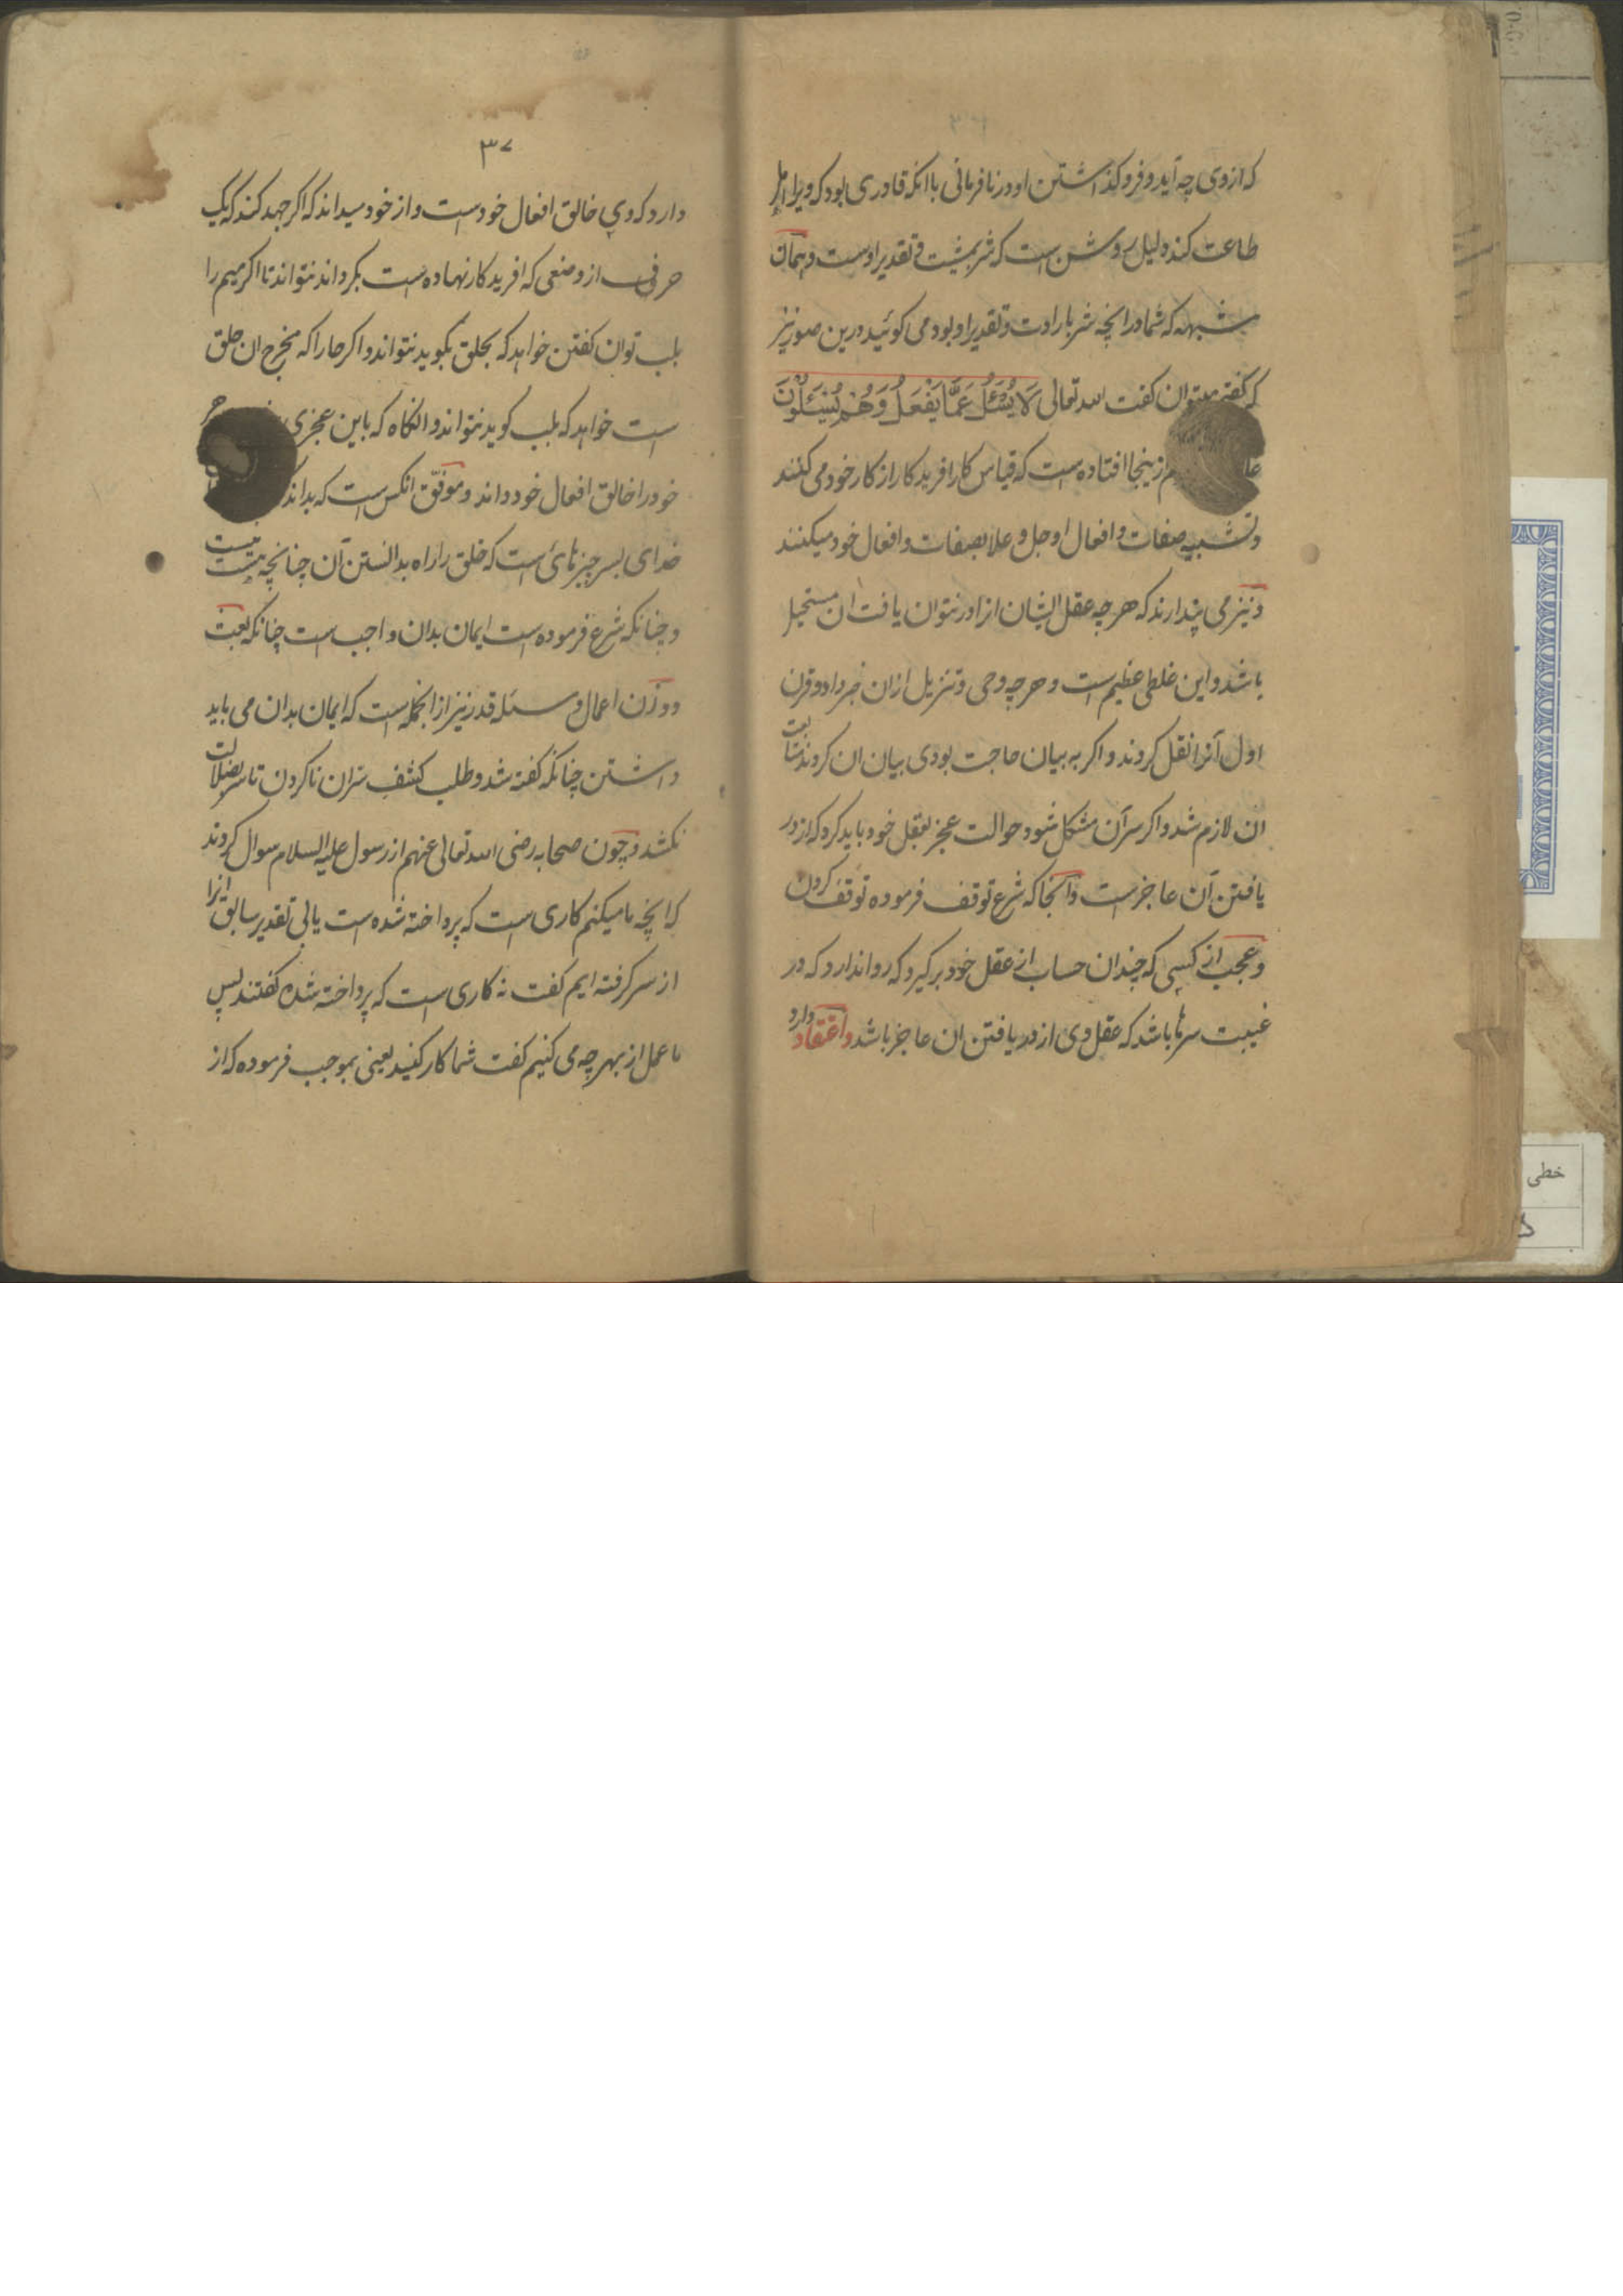 که ازوی چه آید و فروکذاشتن او در نافرمانی با انکه قادری بود که ویرا اهل
طاعت کند دلیل روشن است که شر بمشیت و تقدیر اوست و همان
شبهه که شما در انچه شر بارادت و تقدیر او بود می کوئید درین صورت نیز
که کفته میتوان کفت الله تعالی لَا یُسْئَلُ عَمَّا یَفْعَلُ وَهُمْ یُسْئَلُوْنَ
ازینجا افتاده است که قیاس کار افریدکار از کار خود می کنند
و تشبیه صفات و افعال او جل و علا بصفات و افعال خود میکنند
و نیز می پندارند که هر چه عقل ایشان انرا در نتوان یافت ان مستحیل
باشد و این غلطی عظیم است و هر چه وحی و تنزیل ازان خبر داد و قرن
اول آنرا نقل کردند و اکر به بیان حاجت بودی بیان ان کردند متابعت
ان لازم شد و اکر سر آن مشکل شود حوالت عجز بعقل خود باید کرد که از در
یافتن آن عاجزست و آنجا که شرع توقف فرموده توقف کردن
و عجب از کسی که چندان حساب از عقل خود برکیرد که روا ندارد که در
غیبت سرها باشد که عقل وی از در یافتن ان عاجز باشد و اعتقاد دارد
۳۷
دارد که وی خالق افعال خودست و از خود میداند که اکر جهد کند که یک
حرفی از وضعی که افریدکار نهاده است بکرداند نتواند تا اکر میم را
بلب توان کفتن خواهد که بحلق بکوید نتواند و اکر حا را که مخرج ان حلق
است خواهد که بلب کوید نتواند و انکاه که باین عجزی
خود را خالق افعال خود داند و موفق انکس است که بداند
خدای بسر چیزهای است که خلق را راه بدانستن آن چنانچه هست نیست
و چنانکه شرع فرموده است ایمان بدان واجب است چنانکه بعث
و وزن اعمال و مسئله قدر نیز از انجمله است که ایمان بدان می باید
داشتن چنانکه کفته شد و طلب کشف سر ان ناکردن تا سر بضلالت
نکشد و چون صحابه رضی الله تعالی عنهم از رسول علیه السلام سوال کردند
که انچه ما میکنم کاری است که پرداخته شده است یا بی تقدیر سابق انرا
از سر کرفته ایم کفت نه کاری است که پرداخته شده کفتند پس
ما عمل از بهر چه می کنیم کفت شما کار کنید یعنی بموجب فرموده که از
خطی